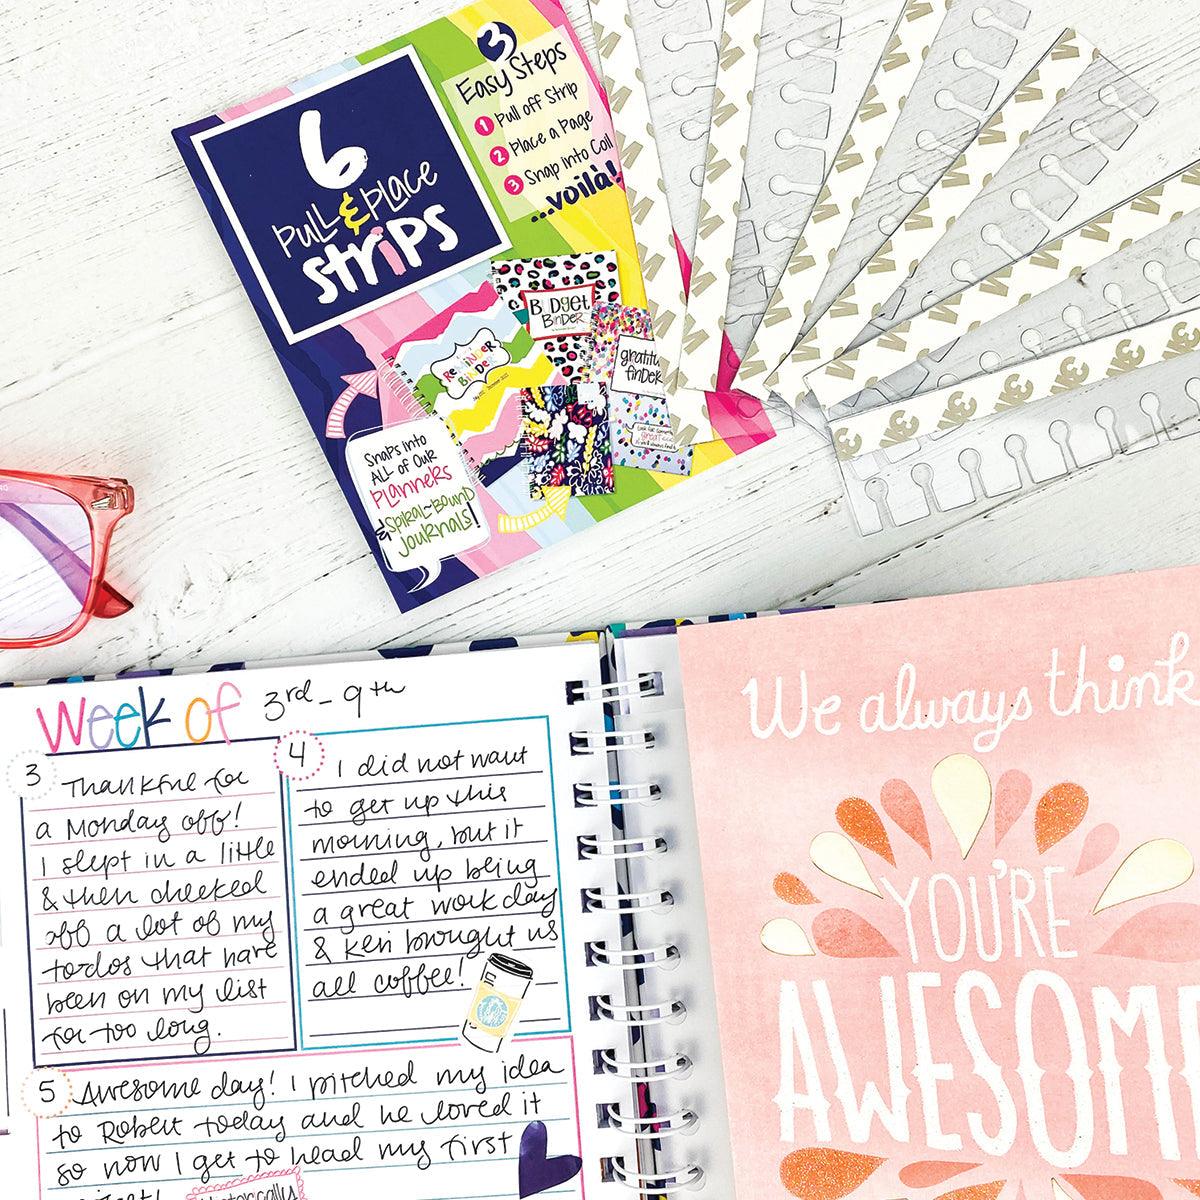 6
Pull & Place
Strips
3
Easy Steps
1 Pull off Strip
2 Place a Page
3 Snap into Coil
...voilà!
Budget
Binder
Reminder
Binder
gratitu
finder
Snaps into
ALL of our
Planners
& Spiral-Bound
Journals!
Week of 3rd - 9th
3
Thankful for
a Monday off!
I slept in a little
& then checked
off a lot of my
to-dos that have
been on my list
for too long.
4
I did not want
to get up this
morning, but it
ended up being
a great work day
& Keri brought us
all coffee!
5
Awesome day! I pitched my idea
to Robert today and he loved it
so now I get to head my first
Historically
We always think
YOU'RE
AWESOME